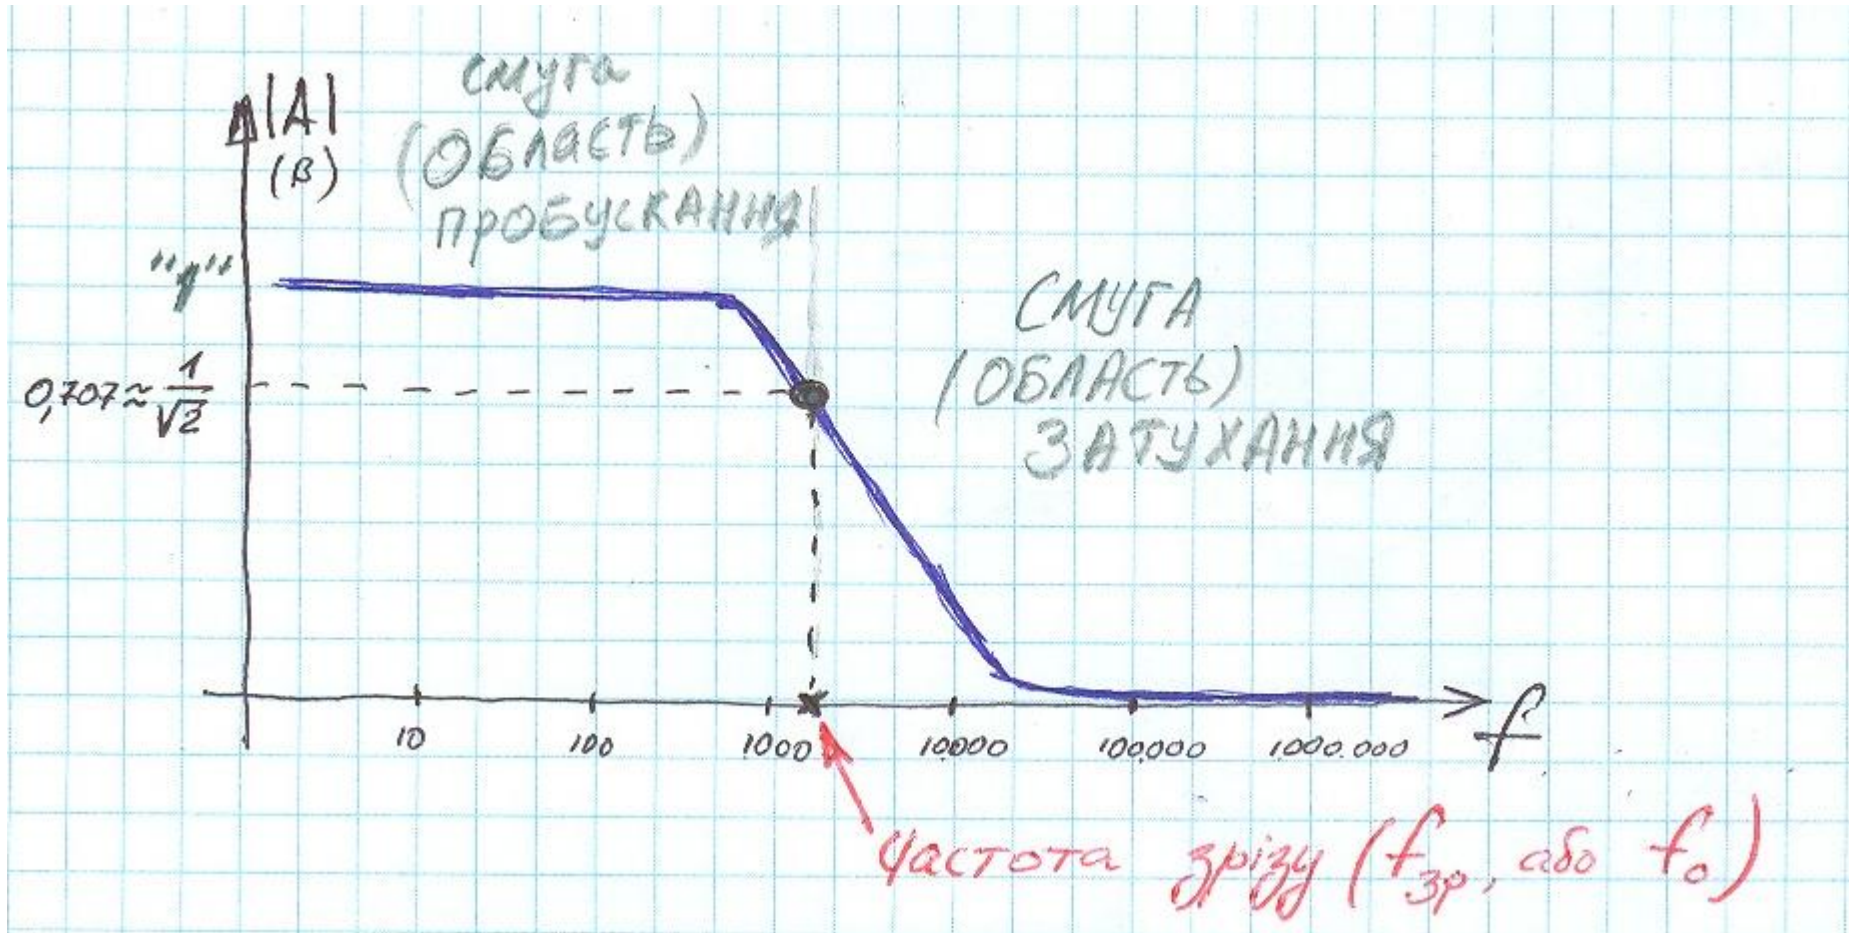 |A|
(В)
смуга
(ОБЛАСТЬ)
ПРОБУСКАННЯ
"1"
0,707≈ 1/√2
СМУГА
(ОБЛАСТЬ)
ЗАТУХАННЯ
10 100 1000 10000 100.000 1.000.000 f
Частота зрізу (fзр, або f0)